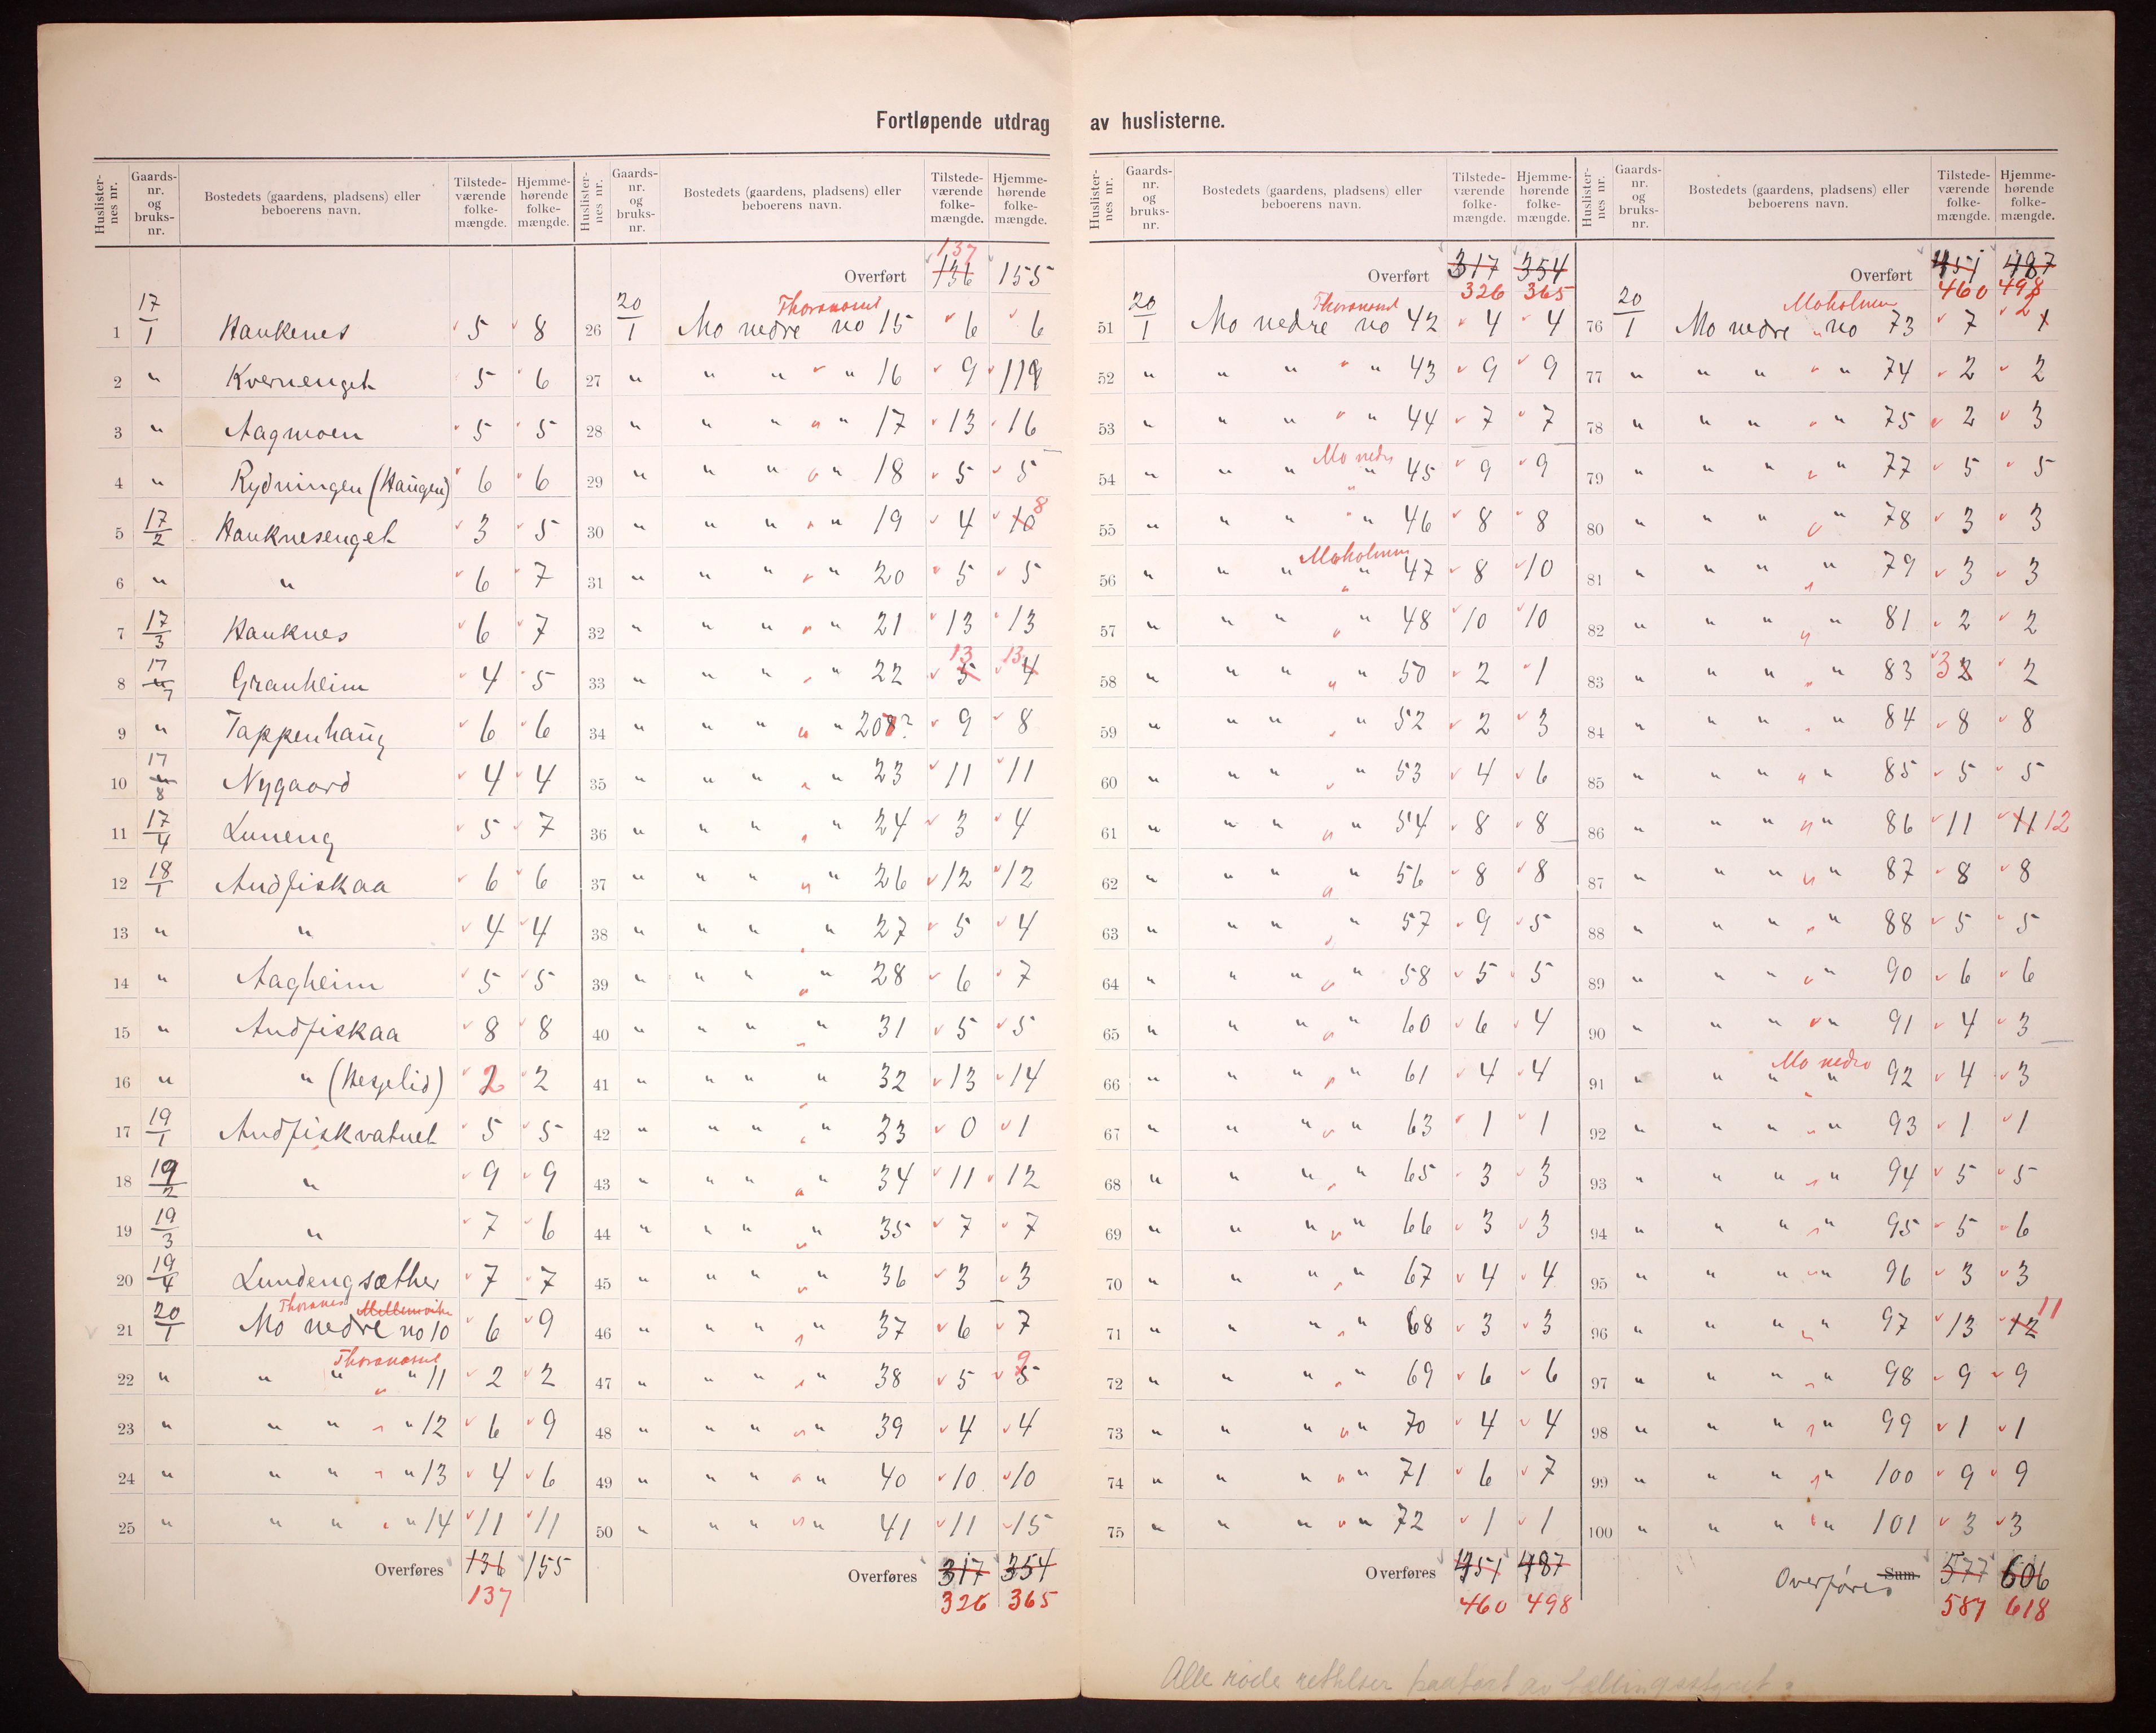 Fortløpende utdrag av huslisterne.
Huslisternes nr. Gaards-nr. og bruks-nr. Bostedets (gaardens, pladsens) eller beboerens navn. Tilstede-værende folke-mængde. Hjemme-hørende folke-mængde.
1 17/1 Haukenes 5 8
2 " Kvernenget 5 6
3 " Aagmoen 5 5
4 " Rydningen (Haugen) 6 6
5 17/2 Hauknesenget 3 5
6 " " 6 7
7 17/3 Hauknes 6 7
8 17/7 Granheim 4 5
9 " Tappenhaug 6 6
10 17/8 Nygaard 4 4
11 17/4 Luneng 5 7
12 18/1 Andfiskaa 6 6
13 " " 4 4
14 " Aagheim 5 5
15 " Andfiskaa 8 8
16 " " (Hesjelid) 2 2
17 19/1 Andfiskvatnet 5 5
18 19/2 " 9 9
19 19/3 " 7 6
20 19/4 Lundengsæther 7 7
21 20/1 Mo nedre no 10 6 9
22 " " " " 11 2 2
23 " " " " 12 6 9
24 " " " " 13 4 6
25 " " " " 14 11 11
Overføres 136 155
137
Huslisternes nr. Gaards-nr. og bruks-nr. Bostedets (gaardens, pladsens) eller beboerens navn. Tilstede-værende folke-mængde. Hjemme-hørende folke-mængde.
137
Overført 136 155
26 20/1 Mo nedre no 15 6 6
27 " " " " 16 9 11
28 " " " " 17 13 16
29 " " " " 18 5 5
30 " " " " 19 4 10 8
31 " " " " 20 5 5
32 " " " " 21 13 13
33 " " " " 22 5 13 4 13
34 " " " " 20 ? 9 8
35 " " " " 23 11 11
36 " " " " 24 3 4
37 " " " " 26 12 12
38 " " " " 27 5 4
39 " " " " 28 6 7
40 " " " " 31 5 5
41 " " " " 32 13 14
42 " " " " 33 0 1
43 " " " " 34 11 12
44 " " " " 35 7 7
45 " " " " 36 3 3
46 " " " " 37 6 7
47 " " " " 38 5 5 9
48 " " " " 39 4 4
49 " " " " 40 10 10
50 " " " " 41 11 15
Overføres 317 354
326 365
Huslisternes nr. Gaards-nr. og bruks-nr. Bostedets (gaardens, pladsens) eller beboerens navn. Tilstede-værende folke-mængde. Hjemme-hørende folke-mængde.
Overført 317 354
326 365
51 20/1 Mo nedre no 42 4 4
52 " " " " 43 9 9
53 " " " " 44 7 7
Mo nedre
54 " " " " 45 9 9
55 " " " " 46 8 8
Moholmen
56 " " " " 47 8 10
57 " " " " 48 10 10
58 " " " " 50 2 1
59 " " " " 52 2 3
60 " " " " 53 4 6
61 " " " " 54 8 8
62 " " " " 56 8 8
63 " " " " 57 9 5
64 " " " " 58 5 5
65 " " " " 60 6 4
66 " " " " 61 4 4
67 " " " " 63 1 1
68 " " " " 65 3 3
69 " " " " 66 3 3
70 " " " " 67 4 4
71 " " " " 68 3 3
72 " " " " 69 6 6
73 " " " " 70 4 4
74 " " " " 71 6 7
75 " " " " 72 1 1
Overføres 451 487
460 498
Huslisternes nr. Gaards-nr. og bruks-nr. Bostedets (gaardens, pladsens) eller beboerens navn. Tilstede-værende folke-mængde. Hjemme-hørende folke-mængde.
Overført 451 487
460 498
Moholmen
76 20/1 Mo nedre " no 73 7
77 " " " " 74 2 2
78 " " " " 75 2 3
79 " " " " 77 5 5
80 " " " " 78 3 3
81 " " " " 79 3 3
82 " " " " 81 2 2
83 " " " " 83 3 2 2
84 " " " " 84 8 8
85 " " " " 85 5 5
86 " " " " 86 11 11 12
87 " " " " 87 8 8
88 " " " " 88 5 5
89 " " " " 90 6 6
90 " " " " 91 4 3
Mo nedre
91 " " " " 92 4 3
92 " " " " 93 1 1
93 " " " " 94 5 5
94 " " " " 95 5 6
95 " " " " 96 3 3
96 " " " " 97 13 12 11
97 " " " " 98 9 9
98 " " " " 99 1 1
99 " " " " 100 9 9
100 " " " " 101 3 3
Overføres Sum 577 606
587 618
Alle røde rettelser paaført av tællingsstyret.